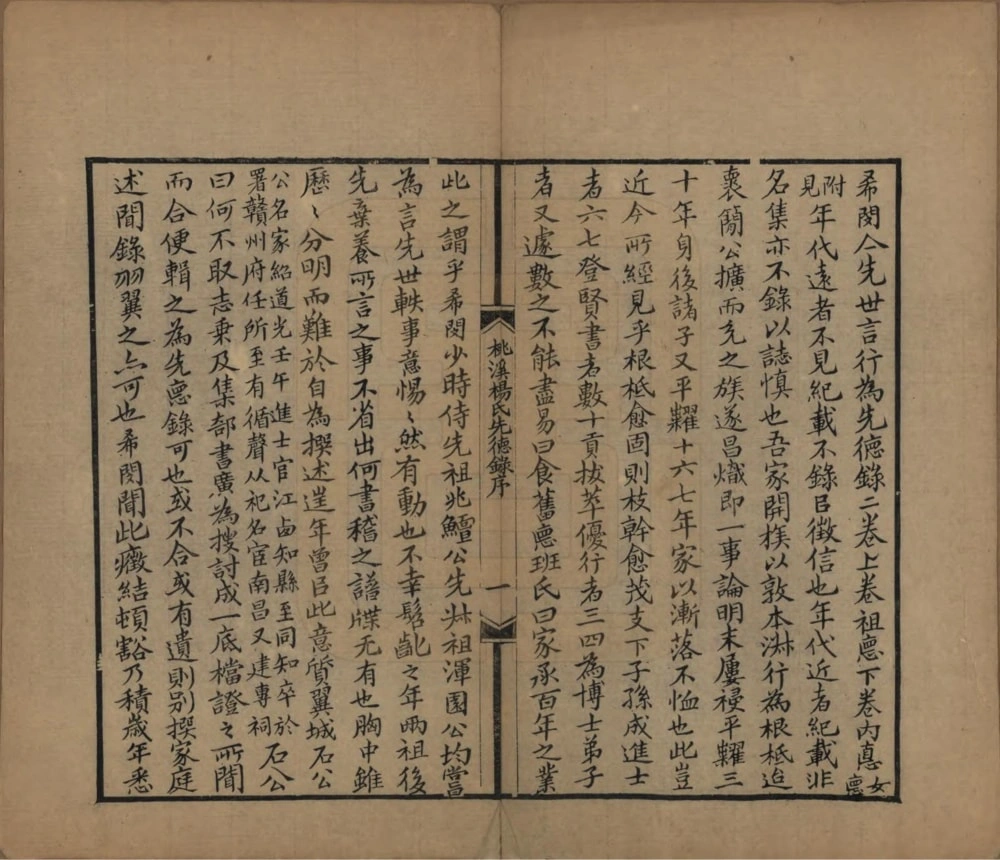 希閔亼先世言行為先德錄二卷上卷祖悳下卷內悳女悳
附見年代遠者不見紀載不錄㠯徵信也年代近者紀載非
名集亦不錄以誌慎也吾家開族以敦本淋行為根柢迨
裵簡公擴而充之族遂昌熾即一事論明末屢祲平糶三
十年身後諸子又平糶十六七年家以漸落不恤也此豈
近今所經見乎根柢愈固則枝幹愈茂支下子孫成進士
者六七登賢書者數十貢拔萃優行者三四為博士弟子
者又遽數之不能盡易曰食舊悳班氏曰家承百年之業
桃溪楊氏先德錄序
一
此之謂乎希閔少時侍先祖兆鱣公先叔祖渾園公均嘗
為言先世軼事意惕〻然有動也不幸髫齔之年兩祖後
先棄養所言之事不省出何書稽之譜牒无有也胸中雖
歷〻分明而難於自為撰述溰年曾㠯此意質翼城石公
公名家紹道光壬午進士官江卤知縣至同知卒於
署贛州府任所至有循聲从祀名宦南昌又建專祠石公
曰何不取志乘及集部書廣為搜討成一底檔證之所聞
而合便輯之為先悳錄可也或不合或有遺則別撰家庭
述聞錄羽翼之亦可也希閔聞此癥結頓豁乃積歲年悉